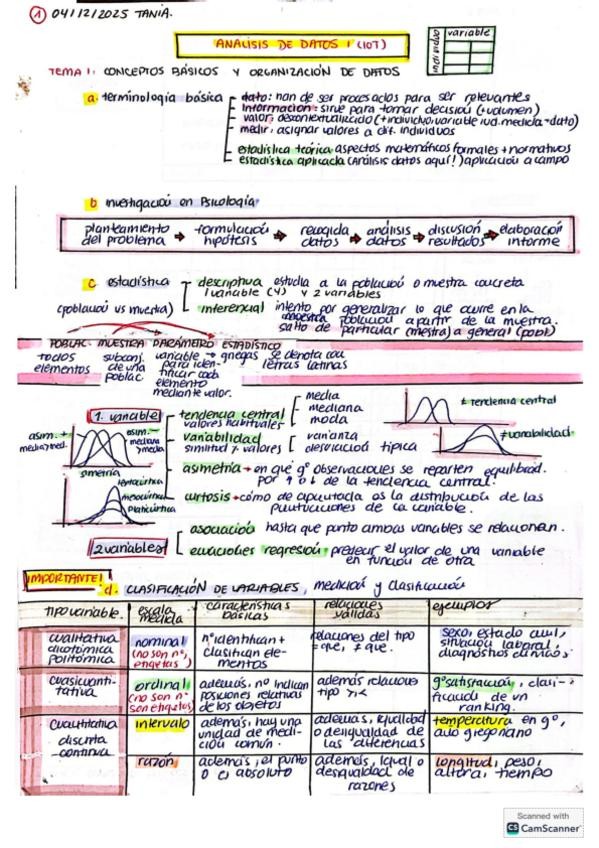 1 04/12/2025 TANIA.
ANÁLISIS DE DATOS 1 (IOT)
variable
individuo
TEMA 1: CONCEPTOS BÁSICOS Y ORGANIZACIÓN DE DATOS
a. terminología básica
dato: han de ser procesados para ser relevantes
información: sirve para tomar decisión (+volumen)
valor: descontextualizado (+individuo, variable, ud. medida → dato)
medir: asignar valores a dif. individuos
estadística teórica aspectos matemáticos formales + normativos
estadística aplicada (Análisis datos aquí!) aplicación a campo
b investigación en Psicología
planteamiento del problema → formulación hipótesis → recogida datos → análisis datos → discusión resultados → elaboración informe
c. estadística
(población vs muestra)
descriptiva estudia a la población o muestra concreta
1 variable (Y) y 2 variables
inferencial intento por generalizar lo que ocurre en la
población a partir de la muestra.
salto de particular (muestra) a general (pobl)
POBLAC. MUESTRA PARÁMETRO ESTADÍSTICO
todos elementos
subconj. de una poblac.
variable → griegas
para identificar cada elemento mediante valor.
se denota con letras latinas
1. variable
tendencia central
valores habituales
media
mediana
moda
≠ tendencia central
variabilidad
similitud ≠ valores
varianza
desviación típica
≠ variabilidad
asim. +
media > med.
asim. -
mediana > media
simetría
asimetría → en qué gº observaciones se reparten equilibrad.
por ↑ o ↓ de la tendencia central.
leptocúrtica
mesocúrtica
platicúrtica
curtosis → cómo de apuntada es la distribución de las
puntuaciones de la variable.
2 variables
asociación hasta que punto ambas variables se relacionan.
ecuaciones regresión → predecir el valor de una variable
en función de otra
IMPORTANTE!
d. CLASIFICACIÓN DE VARIABLES, medición y clasificación
tipo variable. | escala medida | características básicas | relaciones válidas | ejemplos
cualitativa dicotómica politómica | nominal (no son nº, etiquetas) | nº identifican + clasifican elementos | relaciones del tipo = que, ≠ que. | sexo, estado civil, situación laboral, diagnóstico clínico.
cuasicuantitativa | ordinal (no son nº son etiquetas) | además, nº indican posiciones relativas de los objetos | además relaciones tipo >, < | gº satisfacción, clasificación de un ranking.
cuantitativa discreta continua | intervalo | además, hay una unidad de medición común. | además, igualdad o desigualdad de las diferencias | temperatura en gº, año gregoriano
razón | además, el punto 0 es absoluto | además, igual o desigualdad de razones | longitud, peso, altura, tiempo
Scanned with
CS CamScanner